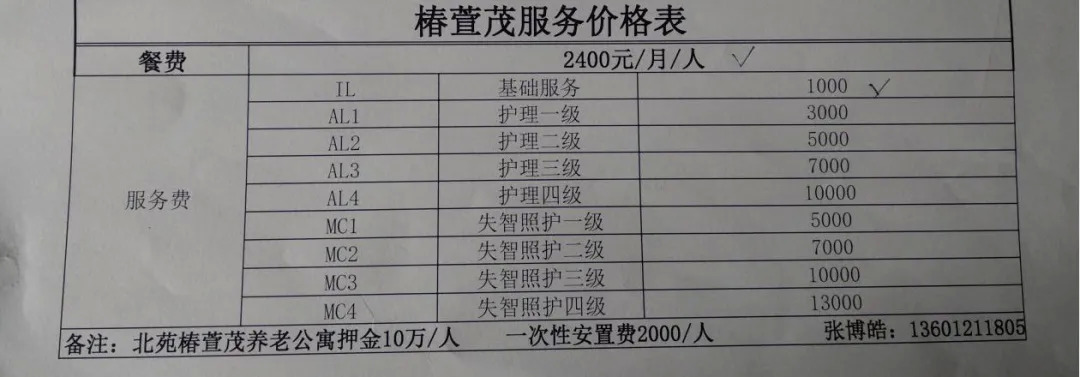 椿萱茂服务价格表
餐费 2400元/月/人 √
IL 基础服务 1000 √
AL1 护理一级 3000
AL2 护理二级 5000
AL3 护理三级 7000
服务费 AL4 护理四级 10000
MC1 失智照护一级 5000
MC2 失智照护二级 7000
MC3 失智照护三级 10000
MC4 失智照护四级 13000
备注：北苑椿萱茂养老公寓押金10万/人 一次性安置费2000/人 张博皓：13601211805